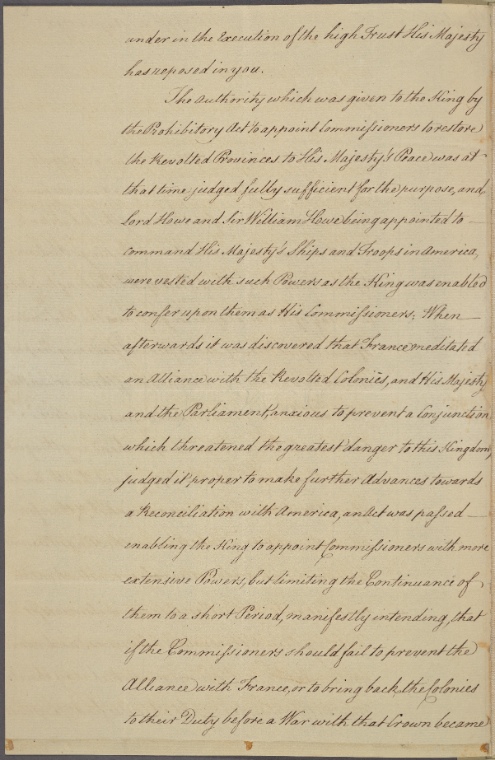 under in the Execution of the high Trust His Majesty
has reposed in you.
The Authority which was given to the King by
the Prohibitory Act to appoint Commissioners to restore
the Revolted Provinces to His Majesty's Peace was at
that time judged fully sufficient for the purpose, and
Lord Howe and Sir William Howe being appointed to
command His Majesty's Ships and Troops in America,
were vested with such Powers as the King was enabled
to confer upon them as His Commissioners. When
afterwards it was discovered that France meditated
an Alliance with the Revolted Colonies, and His Majesty
and the Parliament, anxious to prevent a Conjunction
which threatened the greatest danger to this Kingdom,
judged it proper to make further Advances towards
a Reconciliation with America, an Act was passed
enabling the King to appoint Commissioners with more
extensive Powers, but limiting the Continuance of
them to a short Period, manifestly intending, that
if the Commissioners should fail to prevent the
Alliance with France, or to bring back the Colonies
to their Duty before a War with that Crown became